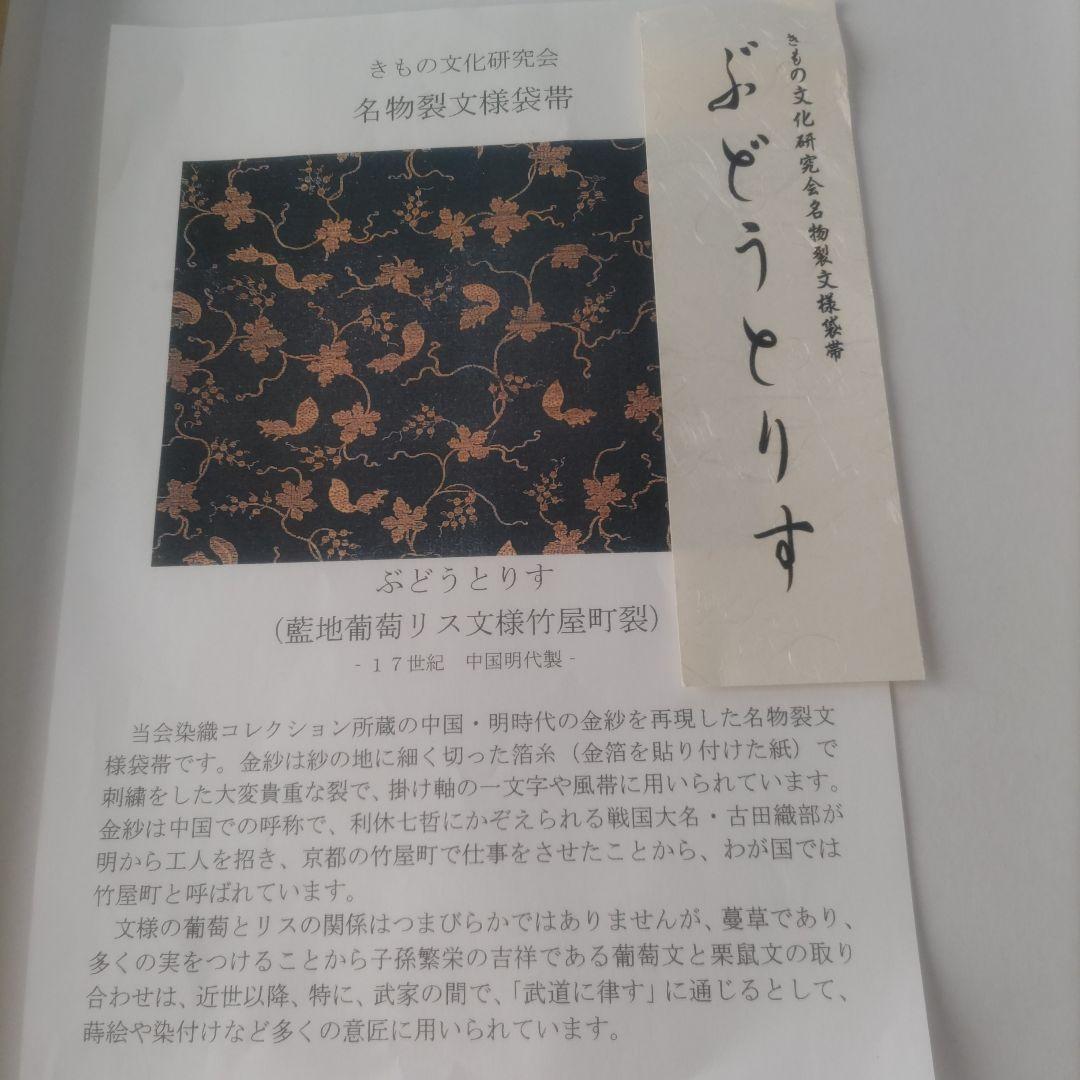 きもの文化研究会
名物裂文様袋帯
ぶどうとりす
(藍地葡萄リス文様竹屋町裂)
- 17世紀 中国明代製 -
当会染織コレクション所蔵の中国・明時代の金紗を再現した名物裂文
様袋帯です。金紗は紗の地に細く切った箔糸(金箔を貼り付けた紙)で
刺繍をした大変貴重な裂で、掛け軸の一文字や風帯に用いられています。
金紗は中国での呼称で、利休七哲にかぞえられる戦国大名・古田織部が
明から工人を招き、京都の竹屋町で仕事をさせたことから、わが国では
竹屋町と呼ばれています。
文様の葡萄とリスの関係はつまびらかではありませんが、蔓草であり、
多くの実をつけることから子孫繁栄の吉祥である葡萄文と栗鼠文の取り
合わせは、近世以降、特に、武家の間で、「武道に律す」に通じるとして、
蒔絵や染付けなど多くの意匠に用いられています。
きもの文化研究会名物裂文様袋帯
ぶどうとりす